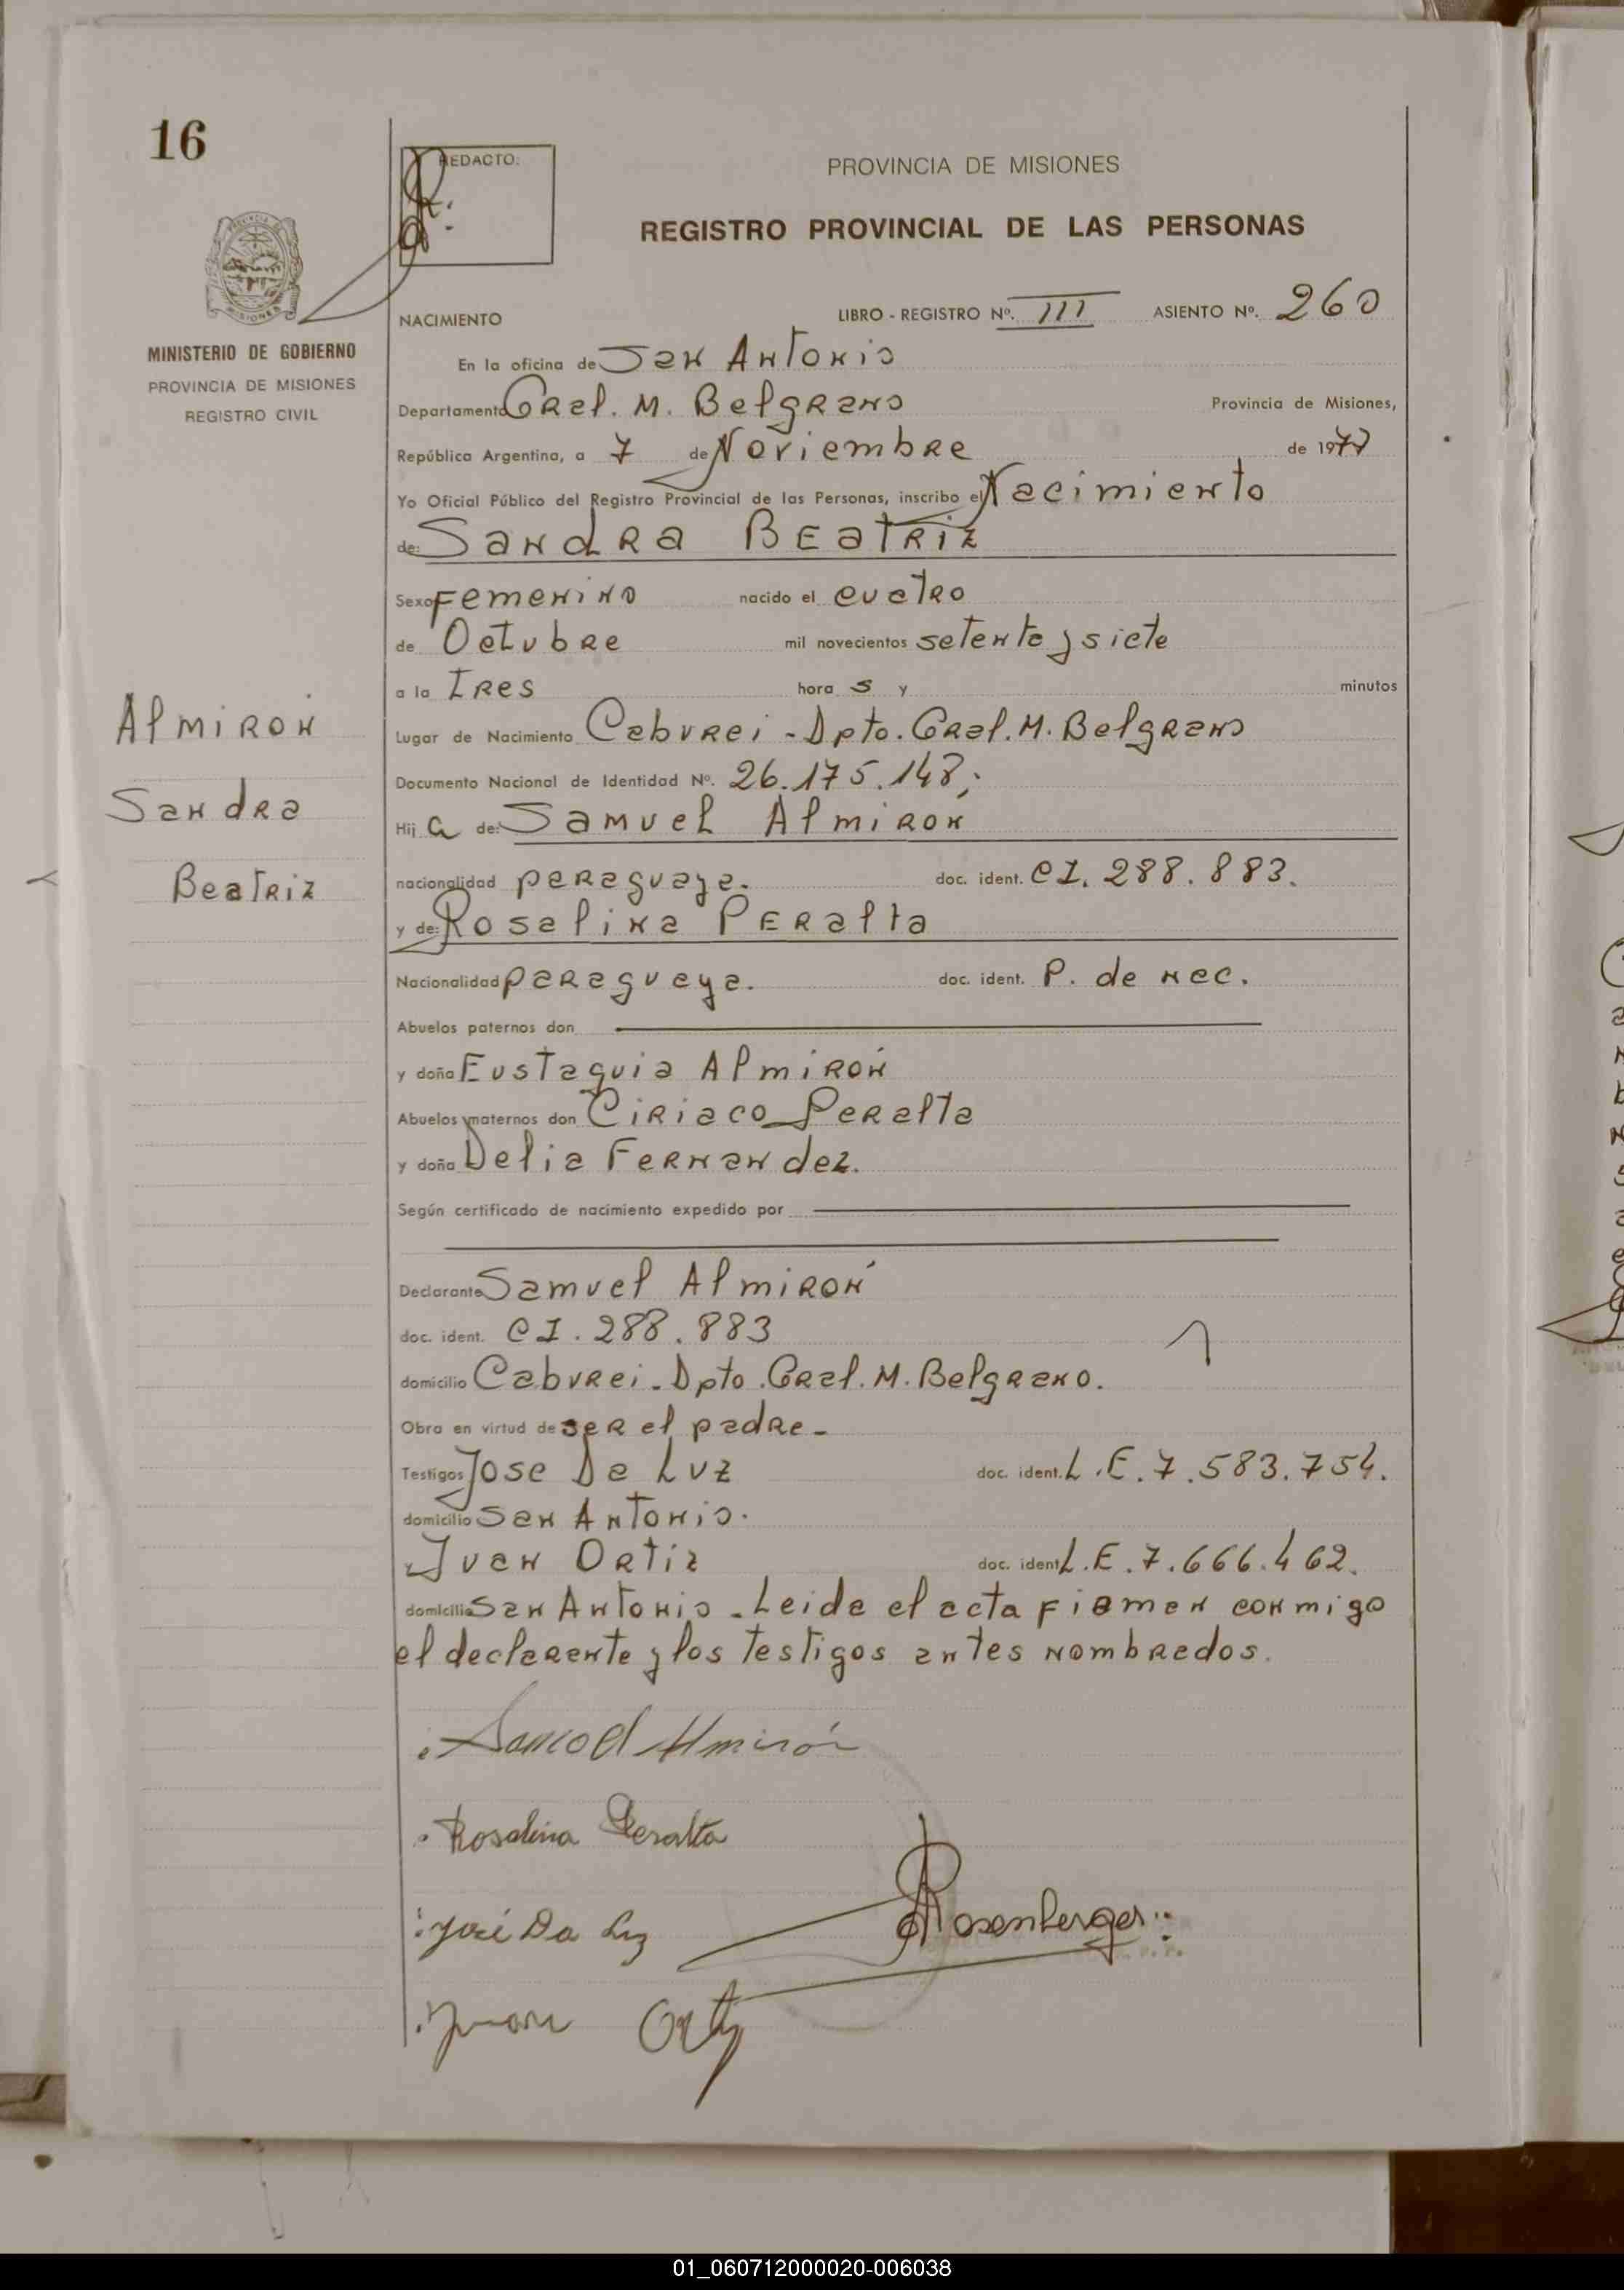 16
REDACTO:
PROVINCIA DE MISIONES
REGISTRO PROVINCIAL DE LAS PERSONAS
MINISTERIO DE GOBIERNO
PROVINCIA DE MISIONES
REGISTRO CIVIL
NACIMIENTO LIBRO - REGISTRO Nº. III ASIENTO Nº. 260
En la oficina de San Antonio
Departamento Gral. M. Belgrano Provincia de Misiones,
República Argentina, a 7 de Noviembre de 1977
Yo Oficial Público del Registro Provincial de las Personas, inscribo el Nacimiento
de: Sandra Beatriz
Sexo Femenino nacido el cuatro
de Octubre mil novecientos setenta y siete
a la Tres hora s y minutos
Almiron
Sandra
Beatriz
Lugar de Nacimiento Caburei - Dpto. Gral. M. Belgrano
Documento Nacional de Identidad Nº. 26.175.148;
Hij a de: Samuel Almirón
nacionalidad paraguaya. doc. ident. CI. 288.883.
y de: Rosalina Peralta
Nacionalidad paraguaya. doc. ident. P. de nac.
Abuelos paternos don
y doña Eustaquia Almirón
Abuelos maternos don Ciriaco Peralta
y doña Delia Fernandez.
Según certificado de nacimiento expedido por
Declarante Samuel Almirón
doc. ident. CI. 288.883
domicilio Caburei - Dpto. Gral. M. Belgrano.
Obra en virtud de ser el padre -
Testigos Jose Da Luz doc. ident. L.E. 7.583.754.
domicilio San Antonio.
y Juan Ortiz doc. ident L.E. 7.666.462.
domicilio San Antonio - Leida el acta firman conmigo
el declarante y los testigos antes nombrados.
Samuel Almirón
Rosalina Peralta
José Da Luz
Rosenberger
Juan Ortiz
01_060712000020-006038